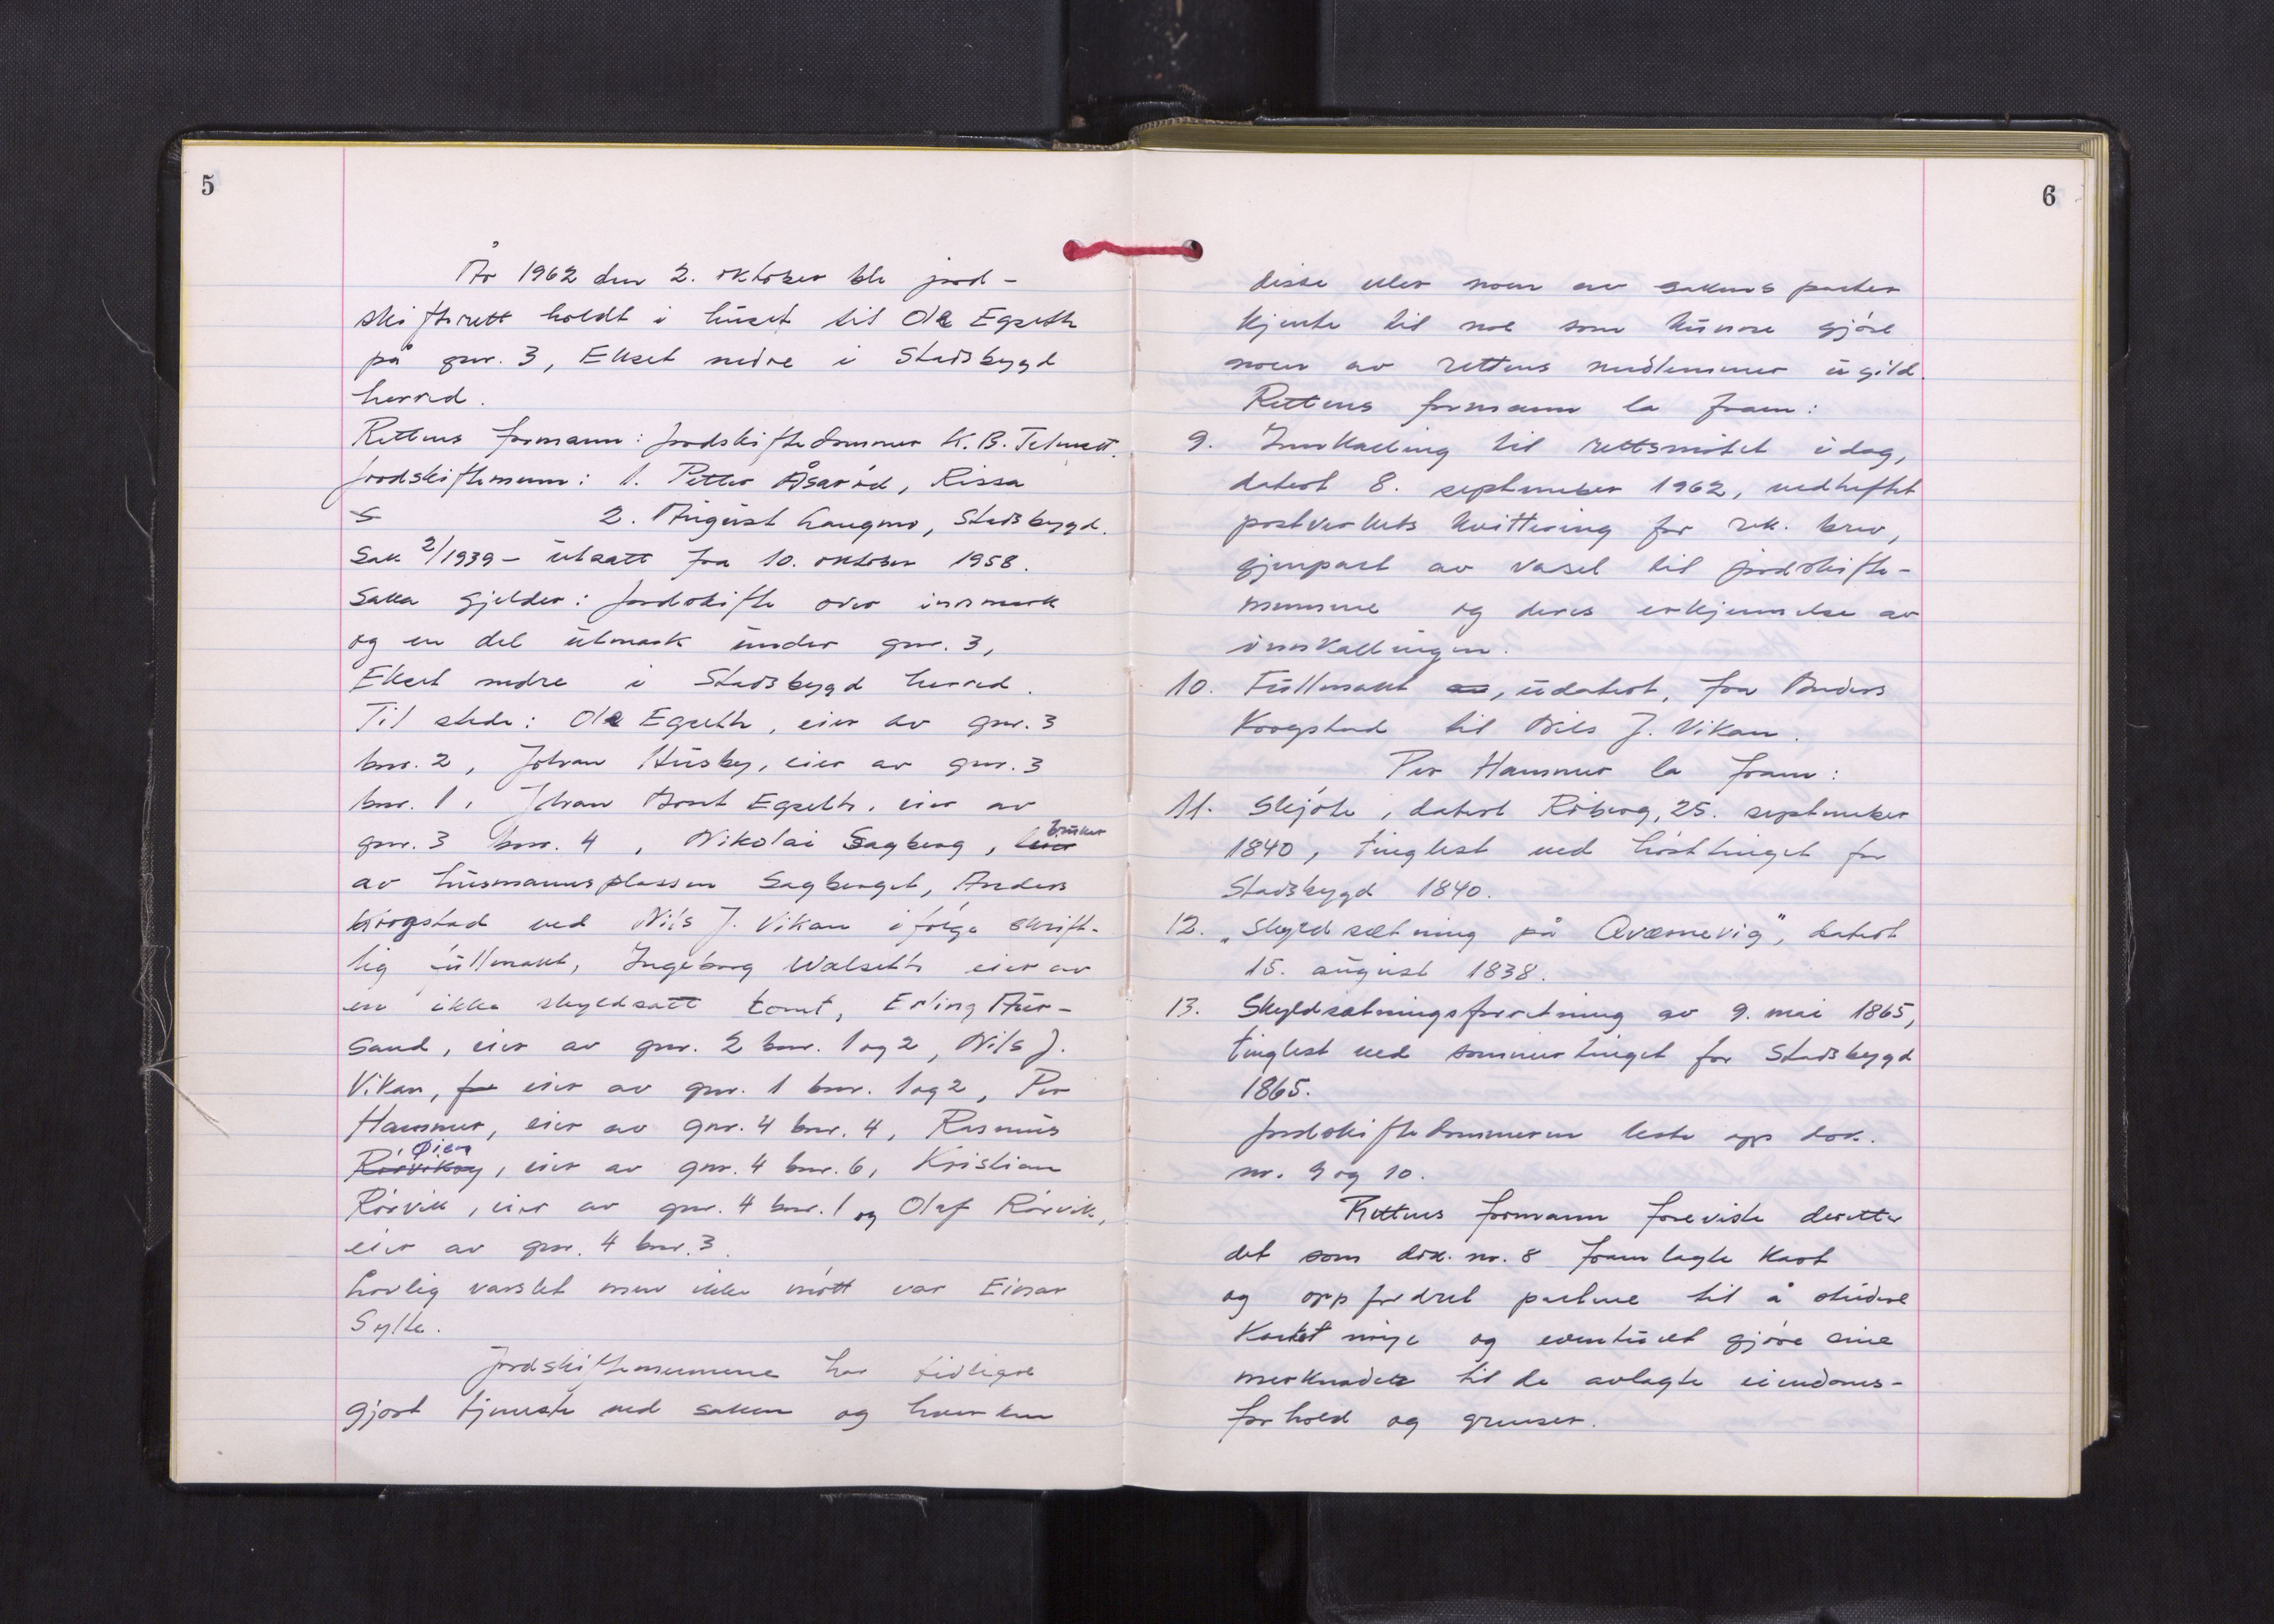 5
År 1962 den 2. oktober ble jord-
skifterett holdt i huset til Ola Egseth
på gnr. 3, Ekset nedre i Stadsbygd
herred.
Rettens formann: Jordskiftedommer K. B.
Jordskiftemenn: 1. Petter Åsarød, Rissa
S 2. August Haugmo, Stadsbygd.
Sak 2/1939 - utsatt fra 10. oktober 1958.
Saka gjelder: Jordskifte over innmark
og en del utmark under gnr. 3,
Ekset nedre i Stadsbygd herred.
Til stede: Ola Egseth, eier av gnr. 3
bnr. 2, Johan Husby, eier av gnr. 3
bnr. 1, Johan Arnt Egseth, eier av
gnr. 3 bnr. 4, Nikolai Sagberg, bruker
av husmannsplassen Sagberget, Anders
Krogstad ved Nils J. Vikan ifølge skrift-
lig fullmakt, Ingeborg Walseth eier av
en ikke skyldsatt tomt, Erling Aur-
sand, eier av gnr. 2 bnr. 1 og 2, Nils J.
Vikan, eier av gnr. 1 bnr. 1 og 2, Per
Hammer, eier av gnr. 4 bnr. 4, Rasmus
Øien, eier av gnr. 4 bnr. 6, Kristian
Rørvik, eier av gnr. 4 bnr. 1 og Olaf Rørvik,
eier av gnr. 4 bnr. 3.
Lovlig varslet men ikke møtt var Einar
Sylte.
Jordskiftemennene har tidligere
gjort tjeneste ved saken og hverken
6
disse eller noen av sakens parter
kjente til noe som kunne gjøre
noen av rettens medlemmer ugild.
Rettens formann la fram:
9. Innkalling til rettsmøtet idag,
datert 8. september 1962, vedheftet
postverkets kvittering for rek. brev,
gjenpart av varsel til jordskifte-
mennene og deres erkjennelse av
innkallingen.
10. Fullmakt, udatert, fra Anders
Krogstad til Nils J. Vikan.
Per Hammer la fram:
11. Skjøte, datert Råberg, 25. september
1840, tinglest ved høsttinget for
Stadsbygd 1840.
12. „Skyldsætning på Qværnevig", datert
15. august 1838.
13. Skyldsætningsforretning av 9. mai 1865,
tinglest ved sommertinget for Stadsbygd
1865.
Jordskiftedommeren leste opp dok.
nr. 9 og 10.
Rettens formann foreviste deretter
det som dok. nr. 8 framlagte kart
og oppfordret partene til å studere
kartet nøye og eventuelt gjøre sine
merknader til de avlagte eiendoms-
forhold og grenser.